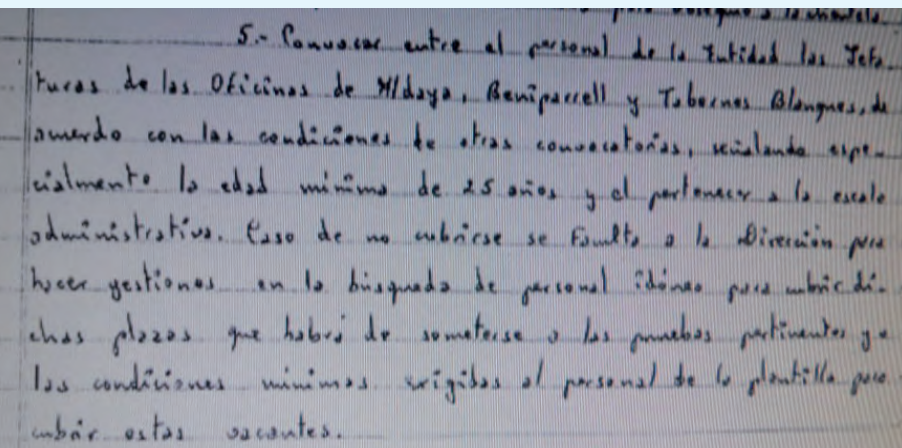 para obsequio a la clientela.
5.- Convocar entre el personal de la Entidad las Jefa-
turas de las Oficinas de Aldaya, Beniparrell y Tabernes Blanques, de
acuerdo con las condiciones de otras convocatorias, señalando espe-
cialmente la edad mínima de 25 años y el pertenecer a la escala
administrativa. Caso de no cubrirse se faculta a la Dirección para
hacer gestiones en la búsqueda de personal idóneo para cubrir di-
chas plazas que habrá de someterse a las pruebas pertinentes y a
las condiciones mínimas exigidas al personal de la plantilla para
cubrir estas vacantes.